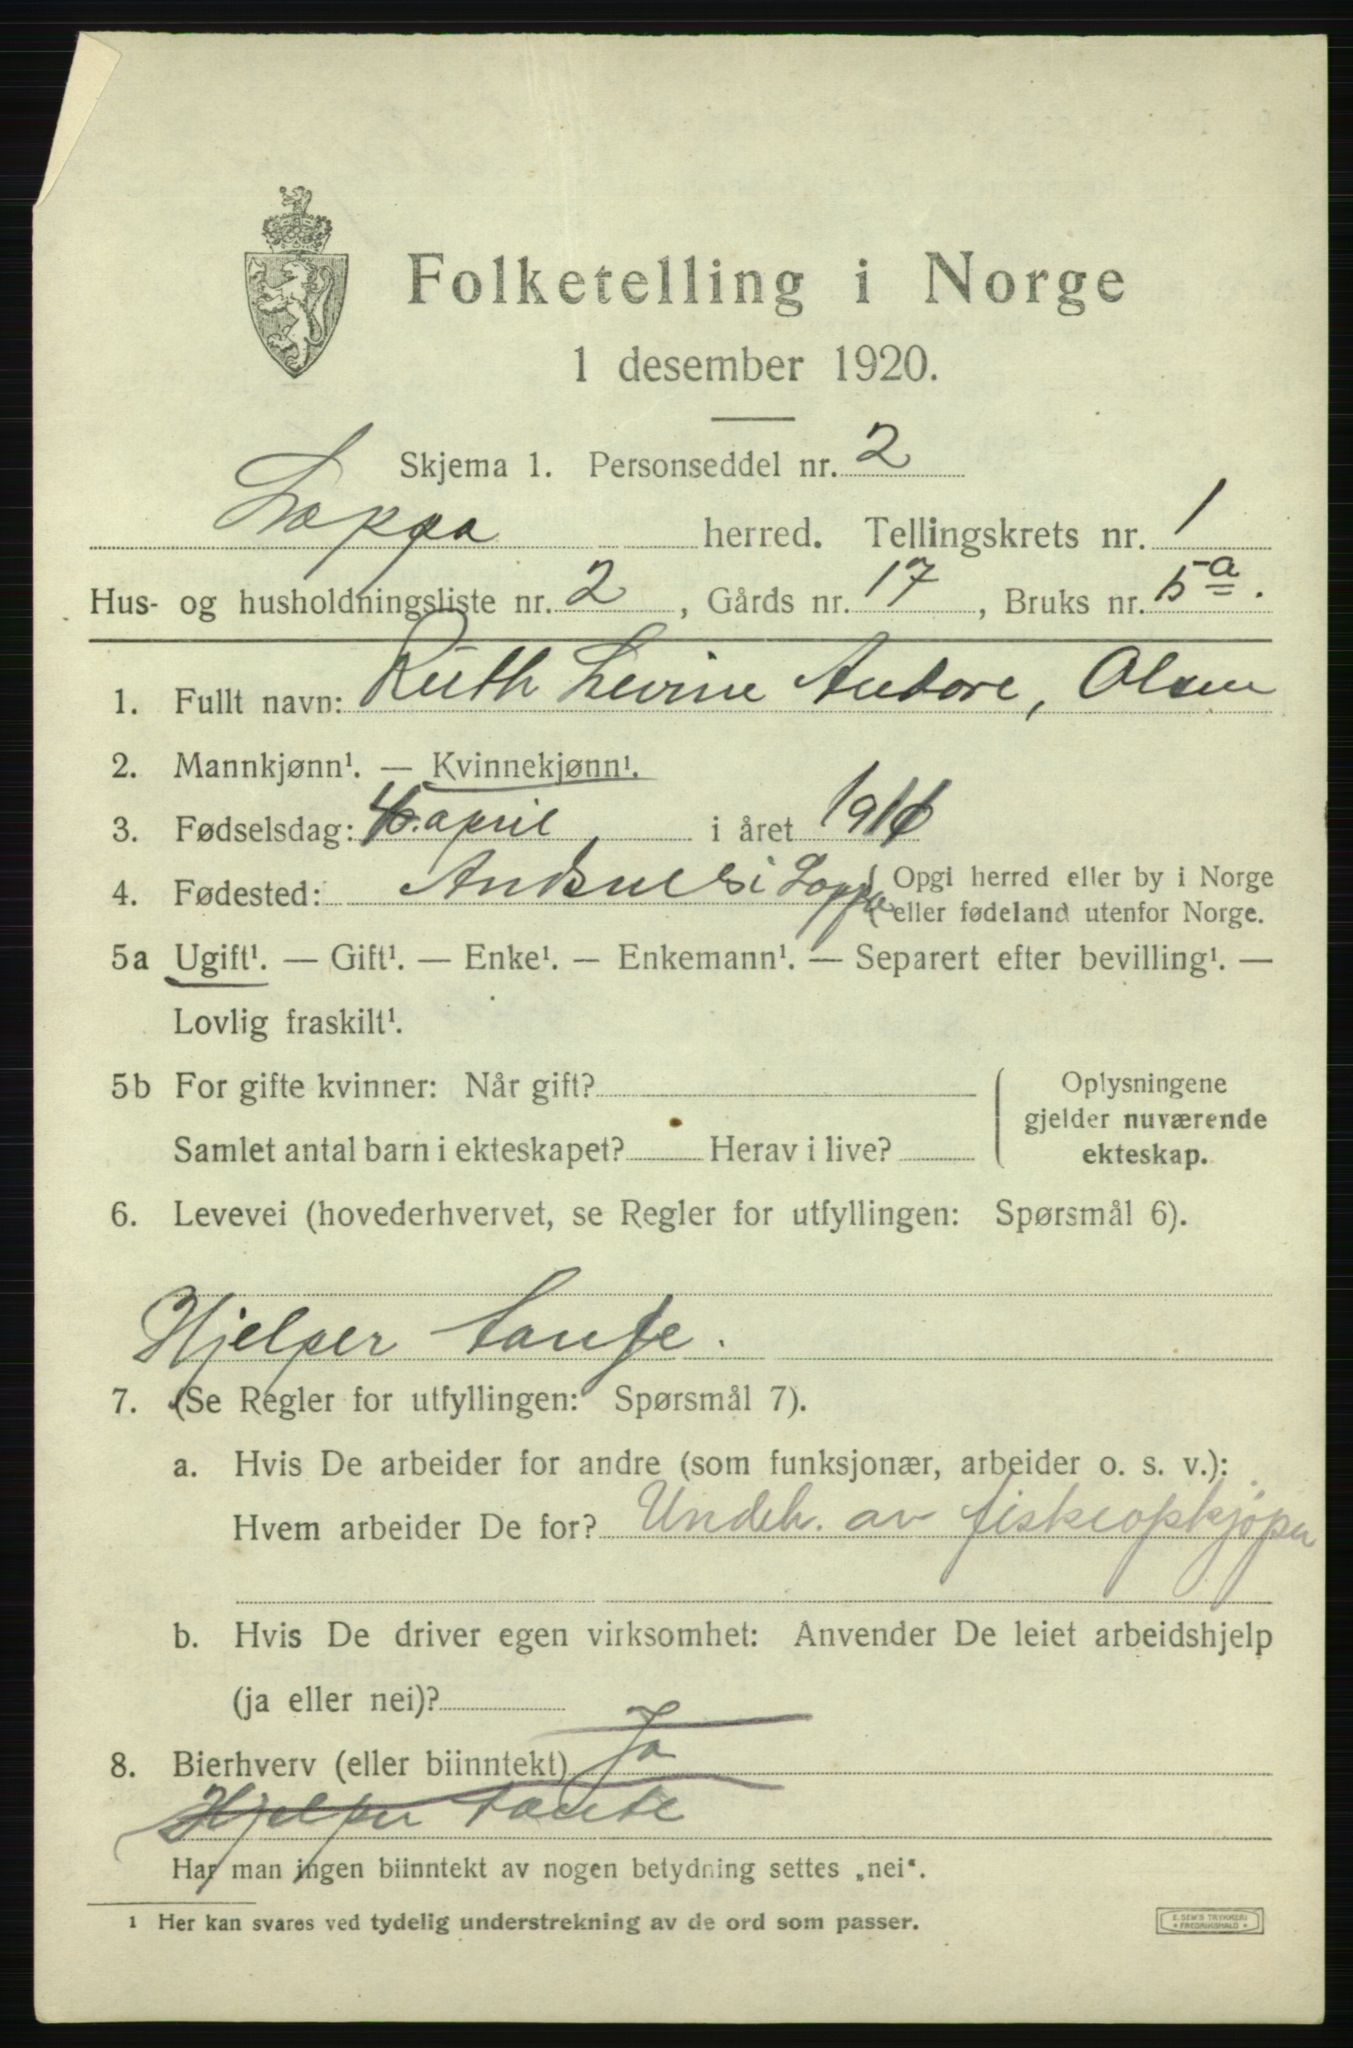 Folketelling i Norge
1 desember 1920.
Skjema 1. Personseddel nr. 2
Loppa herred. Tellingskrets nr. 1
Hus- og husholdningsliste nr. 2, Gårds nr. 17, Bruks nr. 5a.
1. Fullt navn: Ruth Levine Andore, Olsen
2. Mannkjønn¹. — Kvinnekjønn¹.
3. Fødselsdag: april i året
4. Fødested: i Loppa
Opgi herred eller by i Norge
eller fødeland utenfor Norge.
5a Ugift¹. — Gift¹. — Enke¹. — Enkemann¹. — Separert efter bevilling¹. —
Lovlig fraskilt¹.
5b For gifte kvinner: Når gift?
Samlet antal barn i ekteskapet? Herav i live?
Oplysningene
gjelder nuværende
ekteskap.
6. Levevei (hovederhvervet, se Regler for utfyllingen: Spørsmål 6).
Hjelper tante.
7. (Se Regler for utfyllingen: Spørsmål 7).
a. Hvis De arbeider for andre (som funksjonær, arbeider o. s. v.):
Hvem arbeider De for? Undeh. av fiskeopkjøper
b. Hvis De driver egen virksomhet: Anvender De leiet arbeidshjelp
(ja eller nei)?
8. Bierhverv (eller biinntekt) Ja
Hjelper tante
Har man ingen biinntekt av nogen betydning settes „nei“.
¹ Her kan svares ved tydelig understrekning av de ord som passer.
E. SEM'S TRYKKERI
FREDRIKSHALD